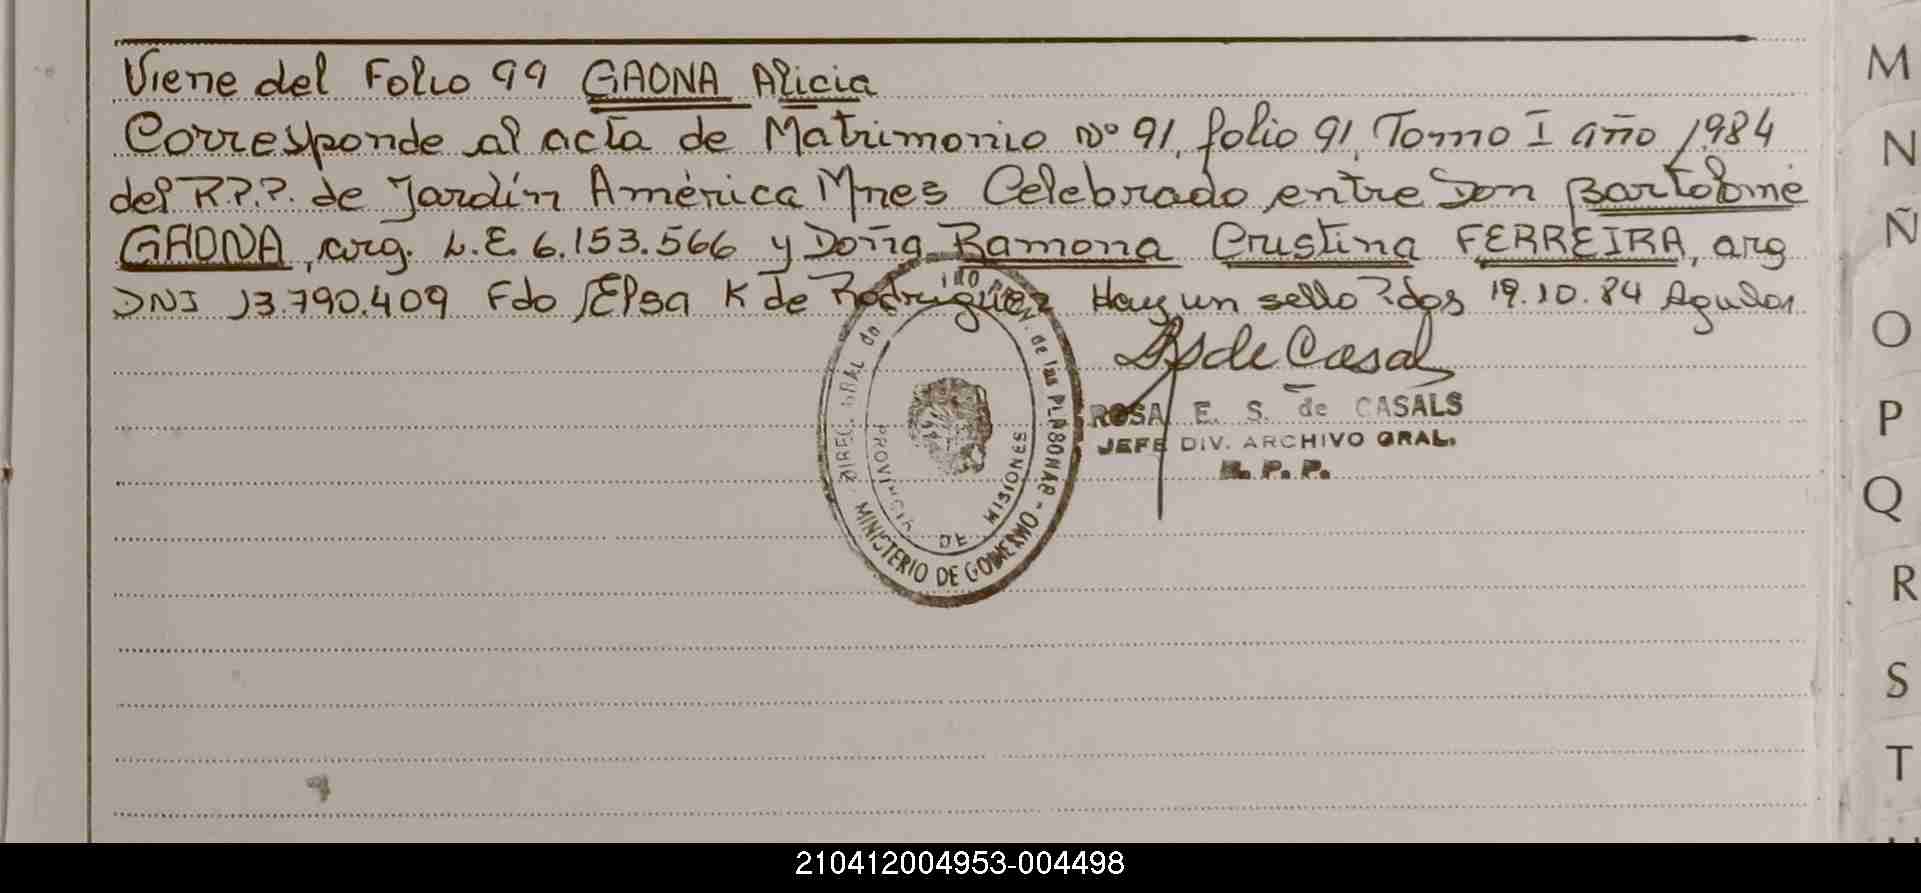 Viene del Folio 99 GAONA Alicia
Corresponde al acta de Matrimonio Nº 91, folio 91, Tomo I año 1984
del R.P.P. de Jardín América Mnes Celebrado entre Don Bartolomé
GAONA, arg. L.E. 6.153.566 y Doña Ramona Cristina FERREIRA, arg
DNI 13.790.409 Fdo Elsa K de Rodriguez Hay un sello Pdos 19.10.84
ROSA E. S. de CASALS
JEFE DIV. ARCHIVO GRAL.
R. P. P.
DIREC. GRAL de las PERSONAS
MINISTERIO DE GOBIERNO
PROVINCIA DE MISIONES
M
N
Ñ
O
P
Q
R
S
T
210412004953-004498